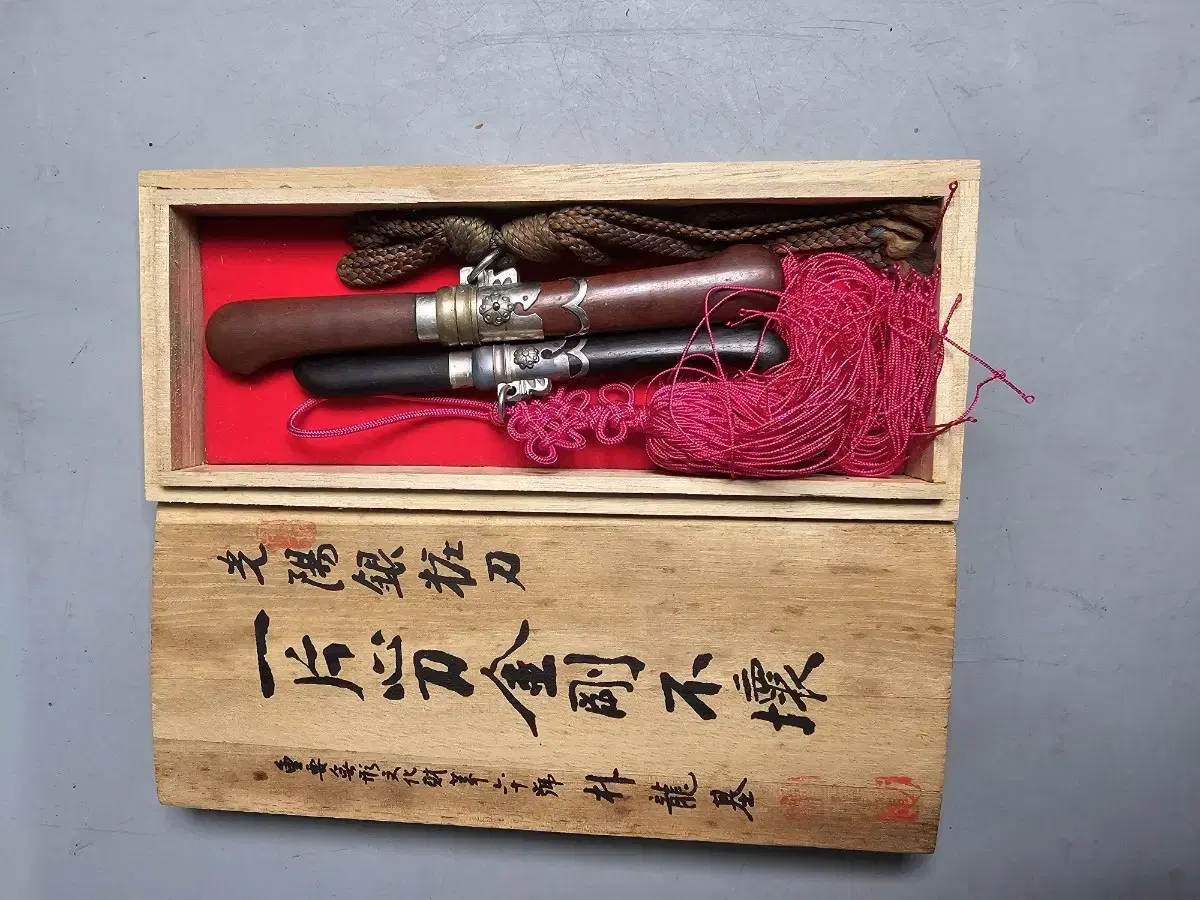 光陽銀粧刀
一片心刀金剛不壞
重要無形文化財第六十號 朴龍基